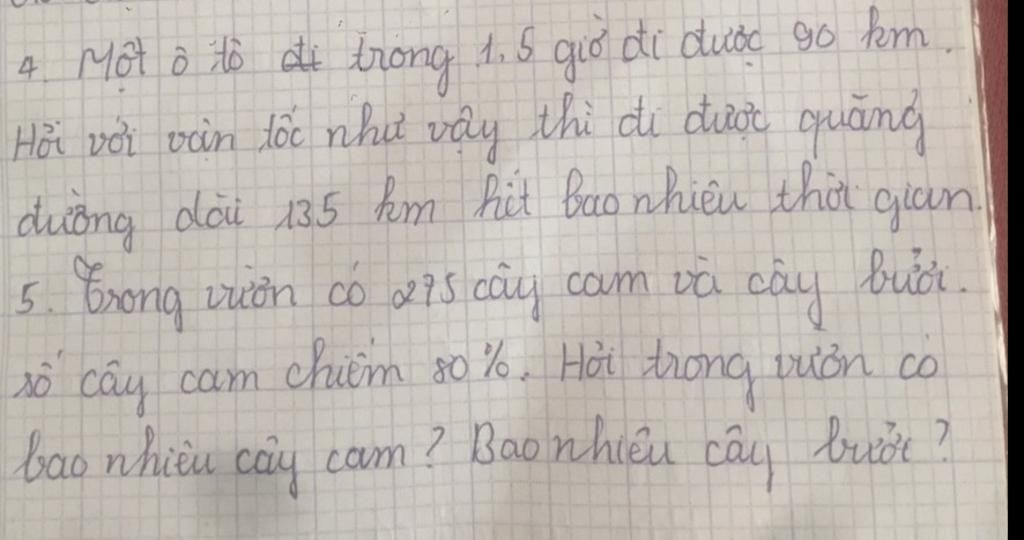 4. Một ô tô đi trong 1,5 giờ đi được 90 km.
Hỏi với vận tốc như vậy thì đi được quãng
đường dài 135 km hết bao nhiêu thời gian.
5. Trong vườn có 275 cây cam và cây bưởi.
số cây cam chiếm 80%. Hỏi trong vườn có
bao nhiêu cây cam? Bao nhiêu cây bưởi?